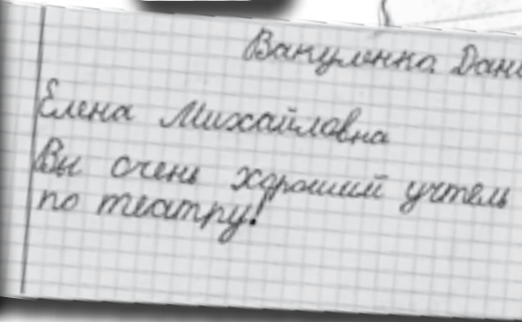 Вакуленко Дани
Елена Михайловна
Вы очень хороший учтель
по театру!